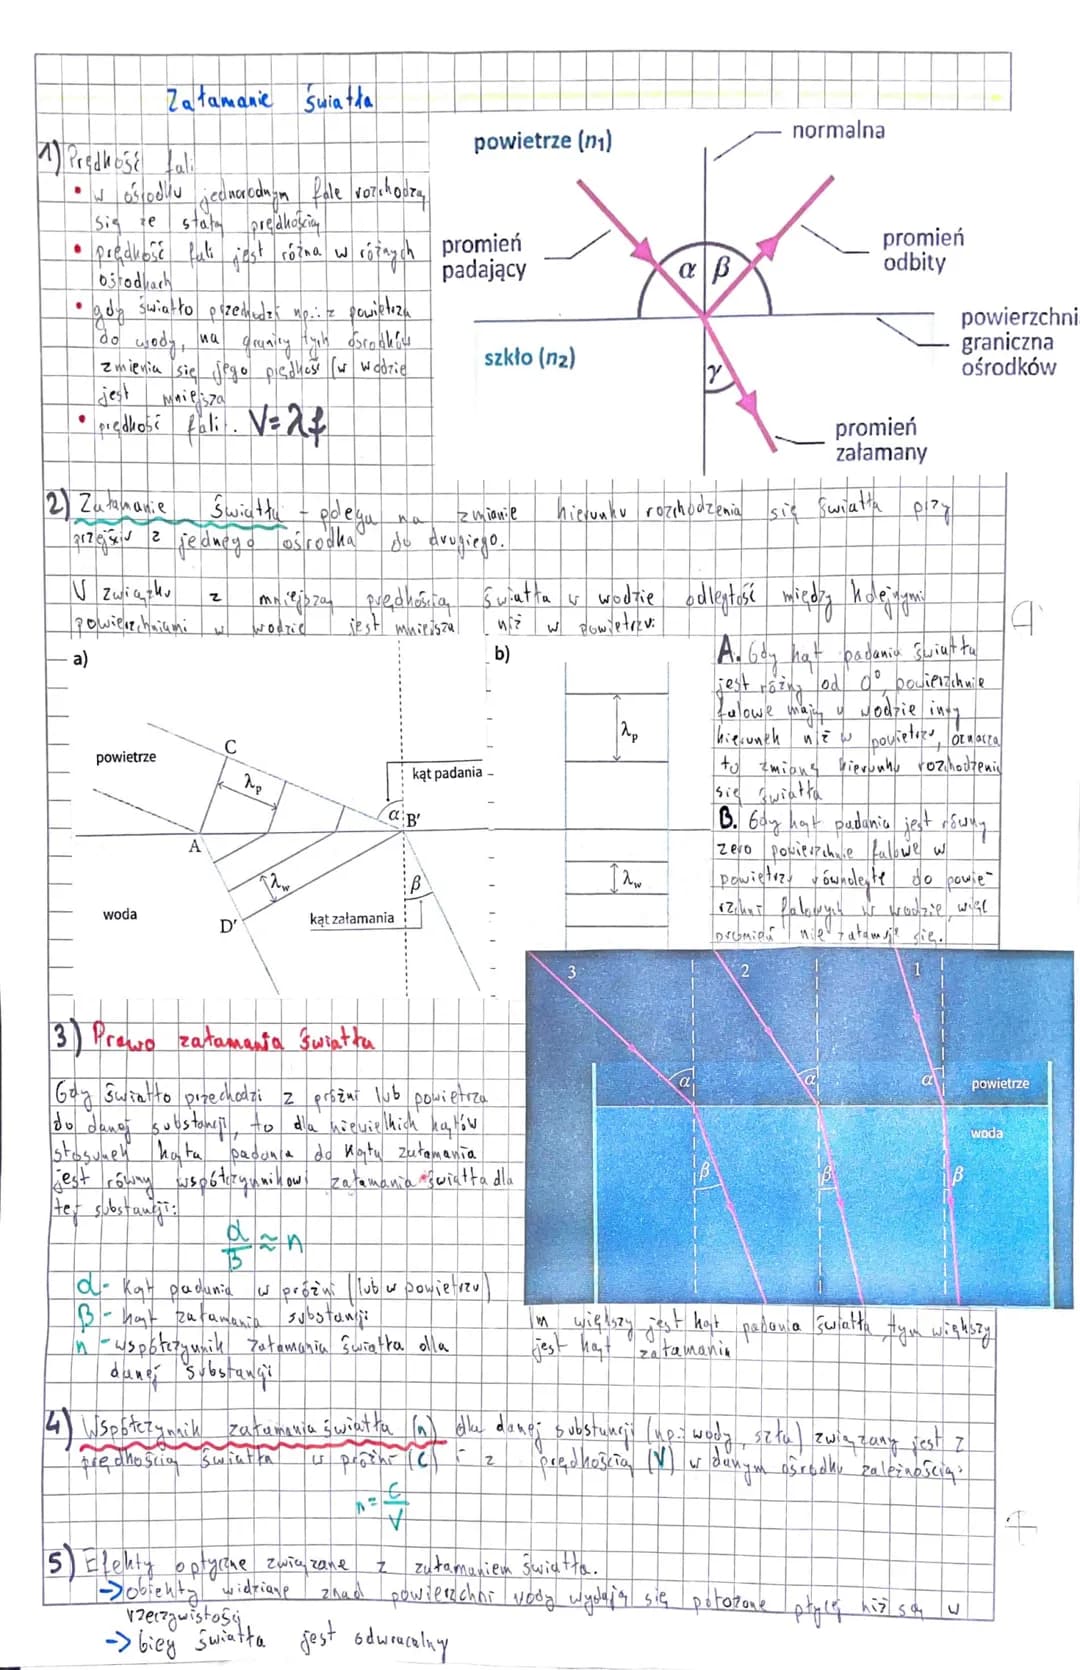 Załamanie światła
1) Prędkość fali
• w ośrodku jednorodnym fale rozchodzą
się ze stałą prędkością
• prędkość fali jest różna w różnych
ośrodkach
• gdy światło przechodzi np.: z powietrza
do wody, na granicy tych ośrodków
zmienia się jego prędkość (w wodzie
jest mniejsza
• prędkość fali: V=λf
powietrze (n1)
normalna
promień
padający
α β
promień
odbity
powierzchni
graniczna
ośrodków
szkło (n2)
γ
promień
załamany
2) Załamanie światła - polega na zmianie kierunku rozchodzenia się światła przy
przejściu z jednego ośrodka do drugiego.
W związku z mniejszą prędkością światła w wodzie odległość między kolejnymi
powierzchniami w wodzie jest mniejsza niż w powietrzu:
a)
powietrze
C
λp
kąt padania
α B'
A
λw
β
woda
D'
kąt załamania
b)
λp
λw
A. Gdy kąt padania światła
jest różny od 0° powierzchnie
falowe mają w wodzie inny
kierunek niż w powietrzu, oznacza
to zmianę kierunku rozchodzenia
się światła
B. Gdy kąt padania jest równy
zero powierzchnie falowe w
powietrzu równoległe do powie-
rzchni falowych w wodzie, więc
promień nie załamuje się.
3 2 1
α α α powietrze
woda
β β β
3) Prawo załamania światła
Gdy światło przechodzi z próżni lub powietrza
do danej substancji, to dla niewielkich kątów
stosunek kąta padania do kąta załamania
jest równy współczynnikowi załamania światła dla
tej substancji:
α/β ≈ n
α - kąt padania w próżni (lub w powietrzu)
β - kąt załamania substancji
n - współczynnik załamania światła dla
danej substancji
Im większy jest kąt padania światła, tym większy
jest kąt załamania
4) Współczynnik załamania światła (n) dla danej substancji (np.: wody, szła) związany jest z
prędkością światła w próżni (c) i z prędkością (V) w danym ośrodku zależnością:
n = c/V
5) Efekty optyczne związane z załamaniem światła.
→ obiekty widziane znad powierzchni wody wydają się położone płycej niż są w
rzeczywistości
→ bieg światła jest odwracalny